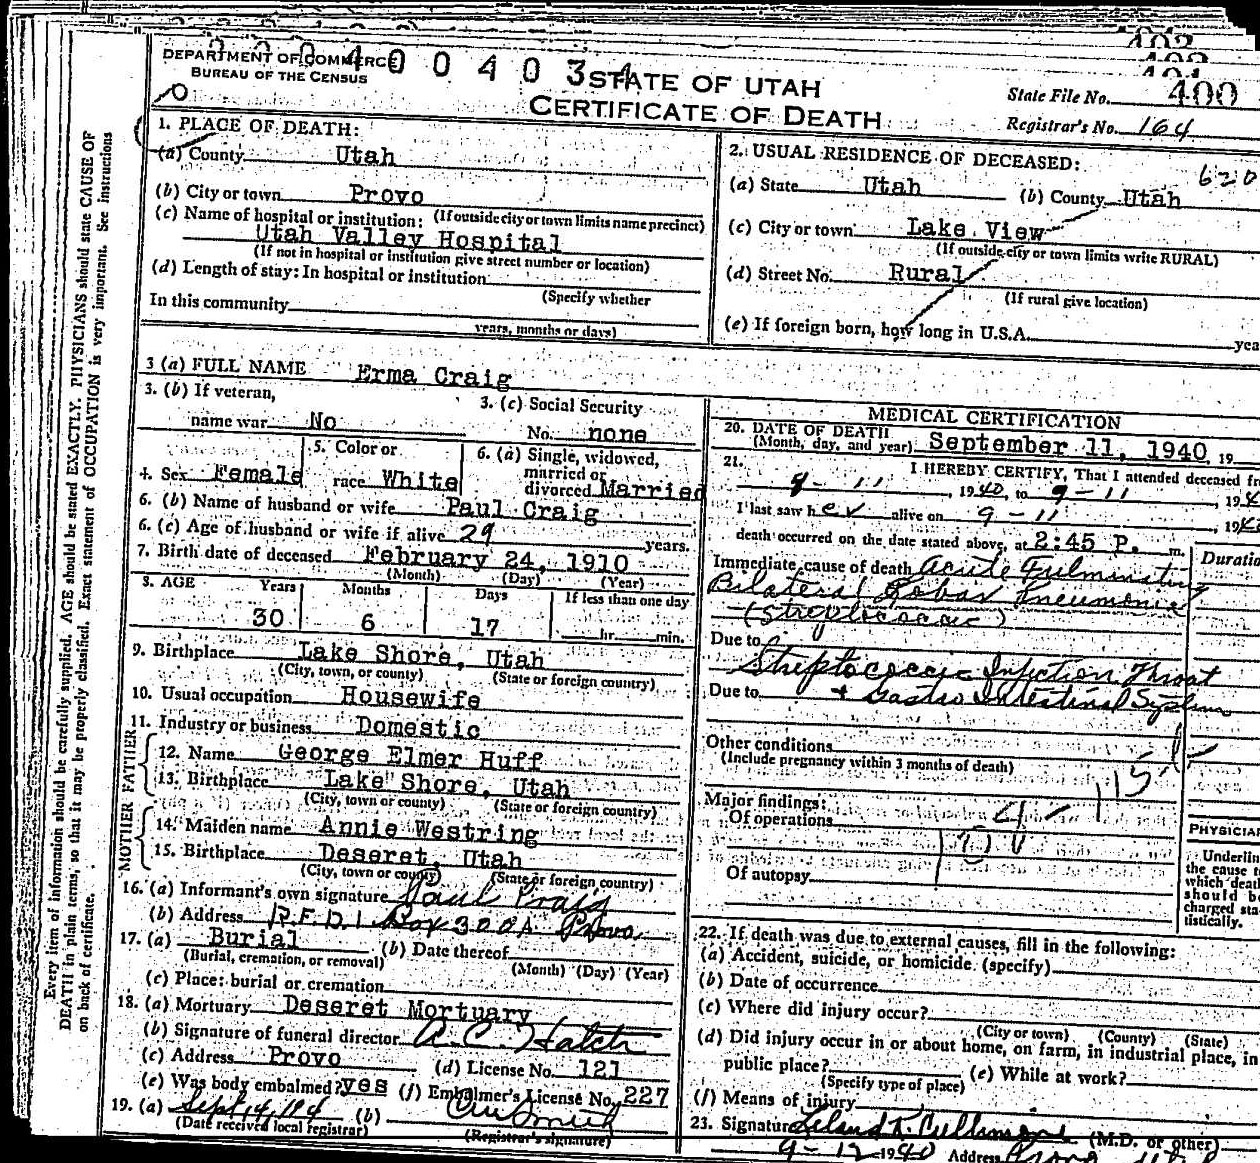 DEPARTMENT OF COMMERCE
BUREAU OF THE CENSUS
0 0 4 0 3 4
STATE OF UTAH
CERTIFICATE OF DEATH
State File No. 400
Registrar's No. 164
1. PLACE OF DEATH:
(a) County Utah
(b) City or town Provo
(c) Name of hospital or institution: (If outside city or town limits name precinct)
Utah Valley Hospital
(If not in hospital or institution give street number or location)
(d) Length of stay: In hospital or institution
(Specify whether
In this community
years, months or days)
2. USUAL RESIDENCE OF DECEASED:
620
(a) State Utah (b) County Utah
(c) City or town Lake View
(If outside city or town limits write RURAL)
(d) Street No. Rural
(If rural give location)
(e) If foreign born, how long in U.S.A. yea
3 (a) FULL NAME Erma Craig
3. (b) If veteran,
name war No
3. (c) Social Security
No. none
4. Sex Female
5. Color or
race White
6. (a) Single, widowed,
married or
divorced Married
6. (b) Name of husband or wife Paul Craig
6. (c) Age of husband or wife if alive 29 years.
7. Birth date of deceased February 24, 1910
(Month) (Day) (Year)
8. AGE Years Months Days If less than one day
30 6 17 hr. min.
9. Birthplace Lake Shore, Utah
(City, town, or county) (State or foreign country)
10. Usual occupation Housewife
11. Industry or business Domestic
FATHER
12. Name George Elmer Huff
13. Birthplace Lake Shore, Utah
(City, town or county) (State or foreign country)
MOTHER
14. Maiden name Annie Westring
15. Birthplace Deseret, Utah
(City, town or county) (State or foreign country)
16. (a) Informant's own signature Paul Craig
(b) Address R.F.D.1 Box 300A Provo
17. (a) Burial (b) Date thereof
(Burial, cremation, or removal) (Month) (Day) (Year)
(c) Place: burial or cremation
18. (a) Mortuary Deseret Mortuary
(b) Signature of funeral director A. C. Hatch
(c) Address Provo (d) License No. 121
(e) Was body embalmed? yes (f) Embalmer's License No. 227
19. (a) Sept, 14, 194 (b)
(Date received local registrar) (Registrar's signature)
MEDICAL CERTIFICATION
20. DATE OF DEATH
(Month, day, and year) September 11, 1940, 19
21. I HEREBY CERTIFY, That I attended deceased fr
9 - 11, 1940, to 9 - 11, 194
I last saw her alive on 9 - 11, 194
death occurred on the date stated above, at 2:45 P. m.
Duratio
Immediate cause of death Acute Fulminating
Bilateral Lobar Pneumonia
(Streptococcic)
Due to
Streptococcic Infection Throat
Due to + Gastro Intestinal System
Other conditions
(Include pregnancy within 3 months of death)
Major findings:
Of operations
Of autopsy
PHYSICIAN
Underlin
the cause t
which deat
should b
charged sta
tistically.
22. If death was due to external causes, fill in the following:
(a) Accident, suicide, or homicide (specify)
(b) Date of occurrence
(c) Where did injury occur?
(City or town) (County) (State)
(d) Did injury occur in or about home, on farm, in industrial place, in
public place? (e) While at work?
(Specify type of place)
(f) Means of injury
23. Signature Leland K. Cullimore (M.D. or other)
9-12 1940 Address Provo
Every item of information should be carefully supplied. AGE should be stated EXACTLY. PHYSICIANS should state CAUSE OF
DEATH in plain terms, so that it may be properly classified. Exact statement of OCCUPATION is very important. See instructions
on back of certificate.